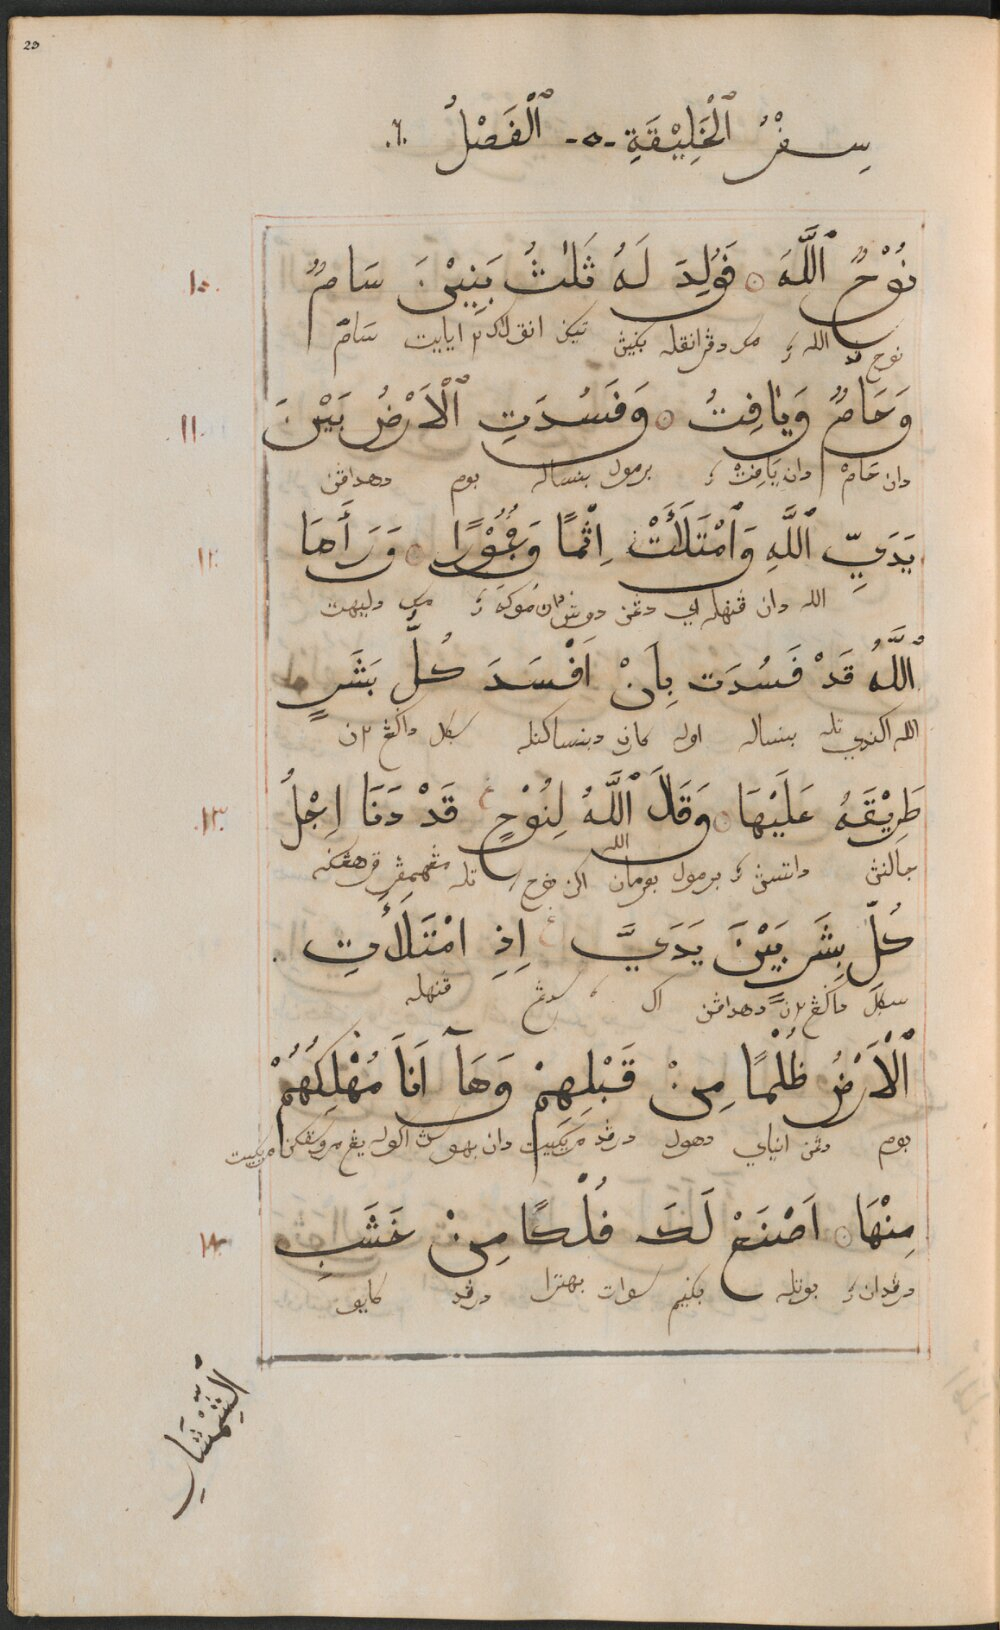 20
سِفْرُ ٱلْخَلِيْقَةِ -٥- ٱلْفَصْلُ .٦.
١٠. نُوْحٌ ٱللَّهَ ۞ فَوُلِدَ لَهُ ثَلٰثُ بَنِيْنَ سَامٌ
نوح الله ؛ مك دڤرانقله بݢيڽ تيݢ انق لاكي٢ ايايت سَامْ
١١. وَحَامٌ وَيٰافِتُ ۞ وَفَسُدَتِ ٱلْاَرْضُ بَيْنَ
دان حَامْ دان يَافِتْ ؛ برمول بنساله بوم دهداڤن
١٢. يَدَيِّ ٱللَّهِ وَٱمْتَلَأَتْ اِثْمًا وَفُجُوْرًا ۞ وَرَأَهَا
الله دان ڤنهله اي دڠن دوش ؛ مك دليهت
ٱللَّهُ قَدْ فَسُدَت بِاَنْ اَفْسَدَ كُلُّ بَشَرٍ
الله اكندي تله بنساله اوله كارن دبنساكنله سݢل داݢيڠ٢ن
١٣. طَرِيْقَهُ عَلَيْهَا ۞ وَقَالَ ٱللَّهُ لِنُوْحٍ قَدْ دَنَا اَجْلُ
جالنڽ داتسڽ ؛ برمول برفرمان الله اكن نوح تله مڠهمڤر
كُلِّ بَشَرٍ بَيْنَ يَدَيَّ اِذِ امْتَلَأَتِ
سݢل داݢيڠ٢ن دهداڤن اك سدڠ ڤنهله
ٱلْاَرْضُ ظُلْمًا مِنْ قَبْلِهِمْ وَهَآ اَنَا مُهْلِكُهُمْ
بوم دڠن انياي دهول درڤد مريكيت دان بهوس اكوله يڠ مريكيت
١٤. مِنْهَا ۞ اَصْنَعْ لَكَ فُلْكًا مِنْ خَشَبِ
درڤدان ؛ بوتله بݢيم سوات بهترا درڤد كايو
ٱلشِّمْشَارِ